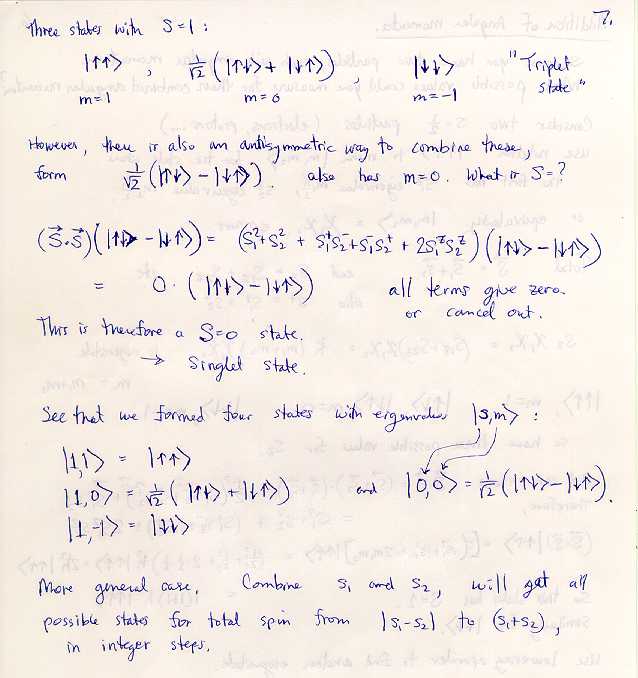 7.
Three states with S=1 :
|↑↑> , 1/√2 (|↑↓> + |↓↑>) , |↓↓> "Triplet
m=1 m=0 m=-1 state"
However, there is also an antisymmetric way to combine these,
form 1/√2 (|↑↓> - |↓↑>). also has m=0. What is S=?
(S⃗·S⃗)(|↑↓> - |↓↑>) = (S₁²+S₂² + S₁⁺S₂⁻+S₁⁻S₂⁺ + 2S₁ᶻS₂ᶻ)(|↑↓> - |↓↑>)
= 0·(|↑↓> - |↓↑>) all terms give zero
or cancel out.
This is therefore a S=0 state.
→ Singlet state.
See that we formed four states with eigenvalues |s,m> :
|1,1> = |↑↑>
|1,0> = 1/√2 (|↑↓> + |↓↑>) and |0,0> = 1/√2 (|↑↓> - |↓↑>).
|1,-1> = |↓↓>
More general case. Combine s₁ and s₂, will get all
possible states for total spin from |s₁-s₂| to (s₁+s₂),
in integer steps.